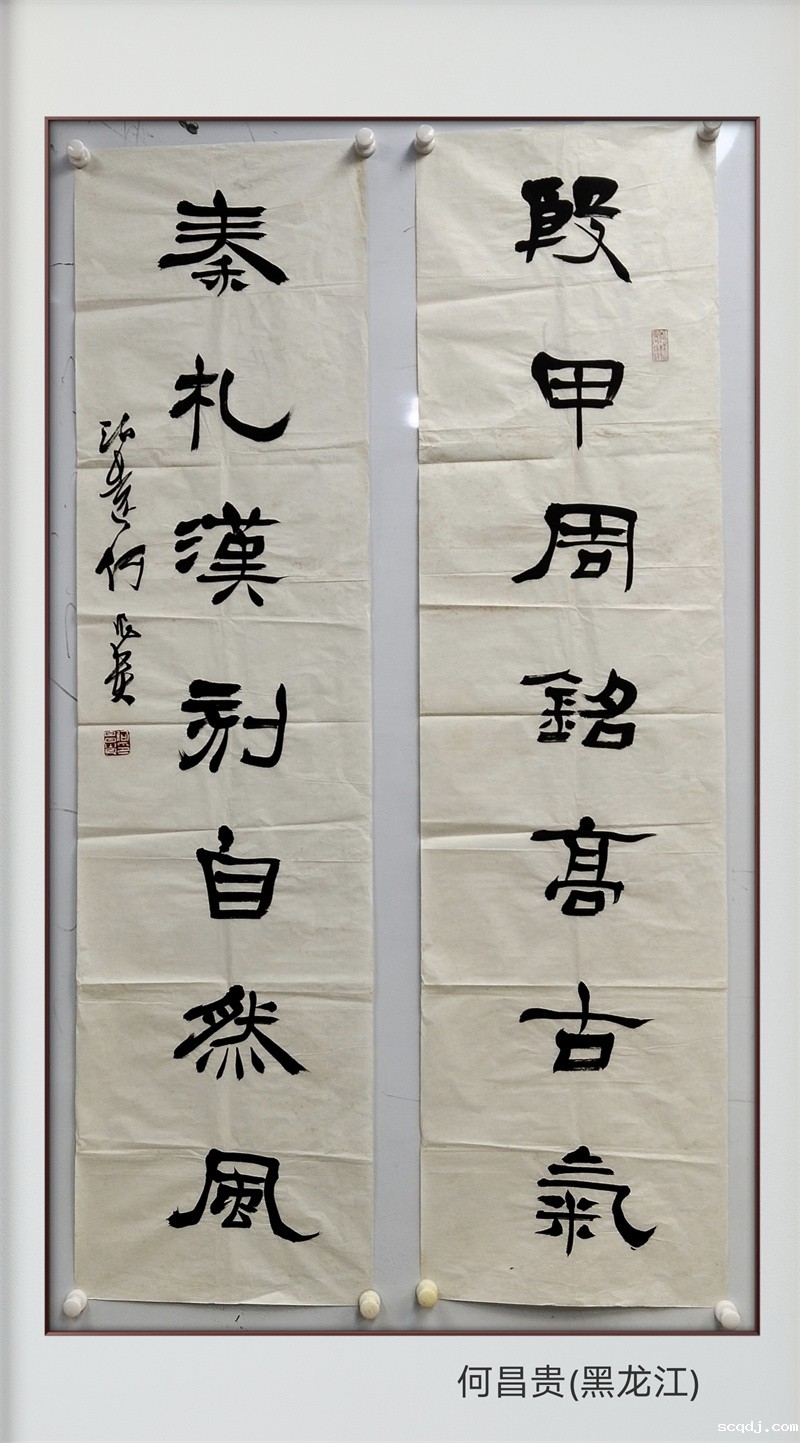 殷甲周銘高古氣
秦札漢刻自然風
何昌贵
何昌贵(黑龙江)
scqdj.com